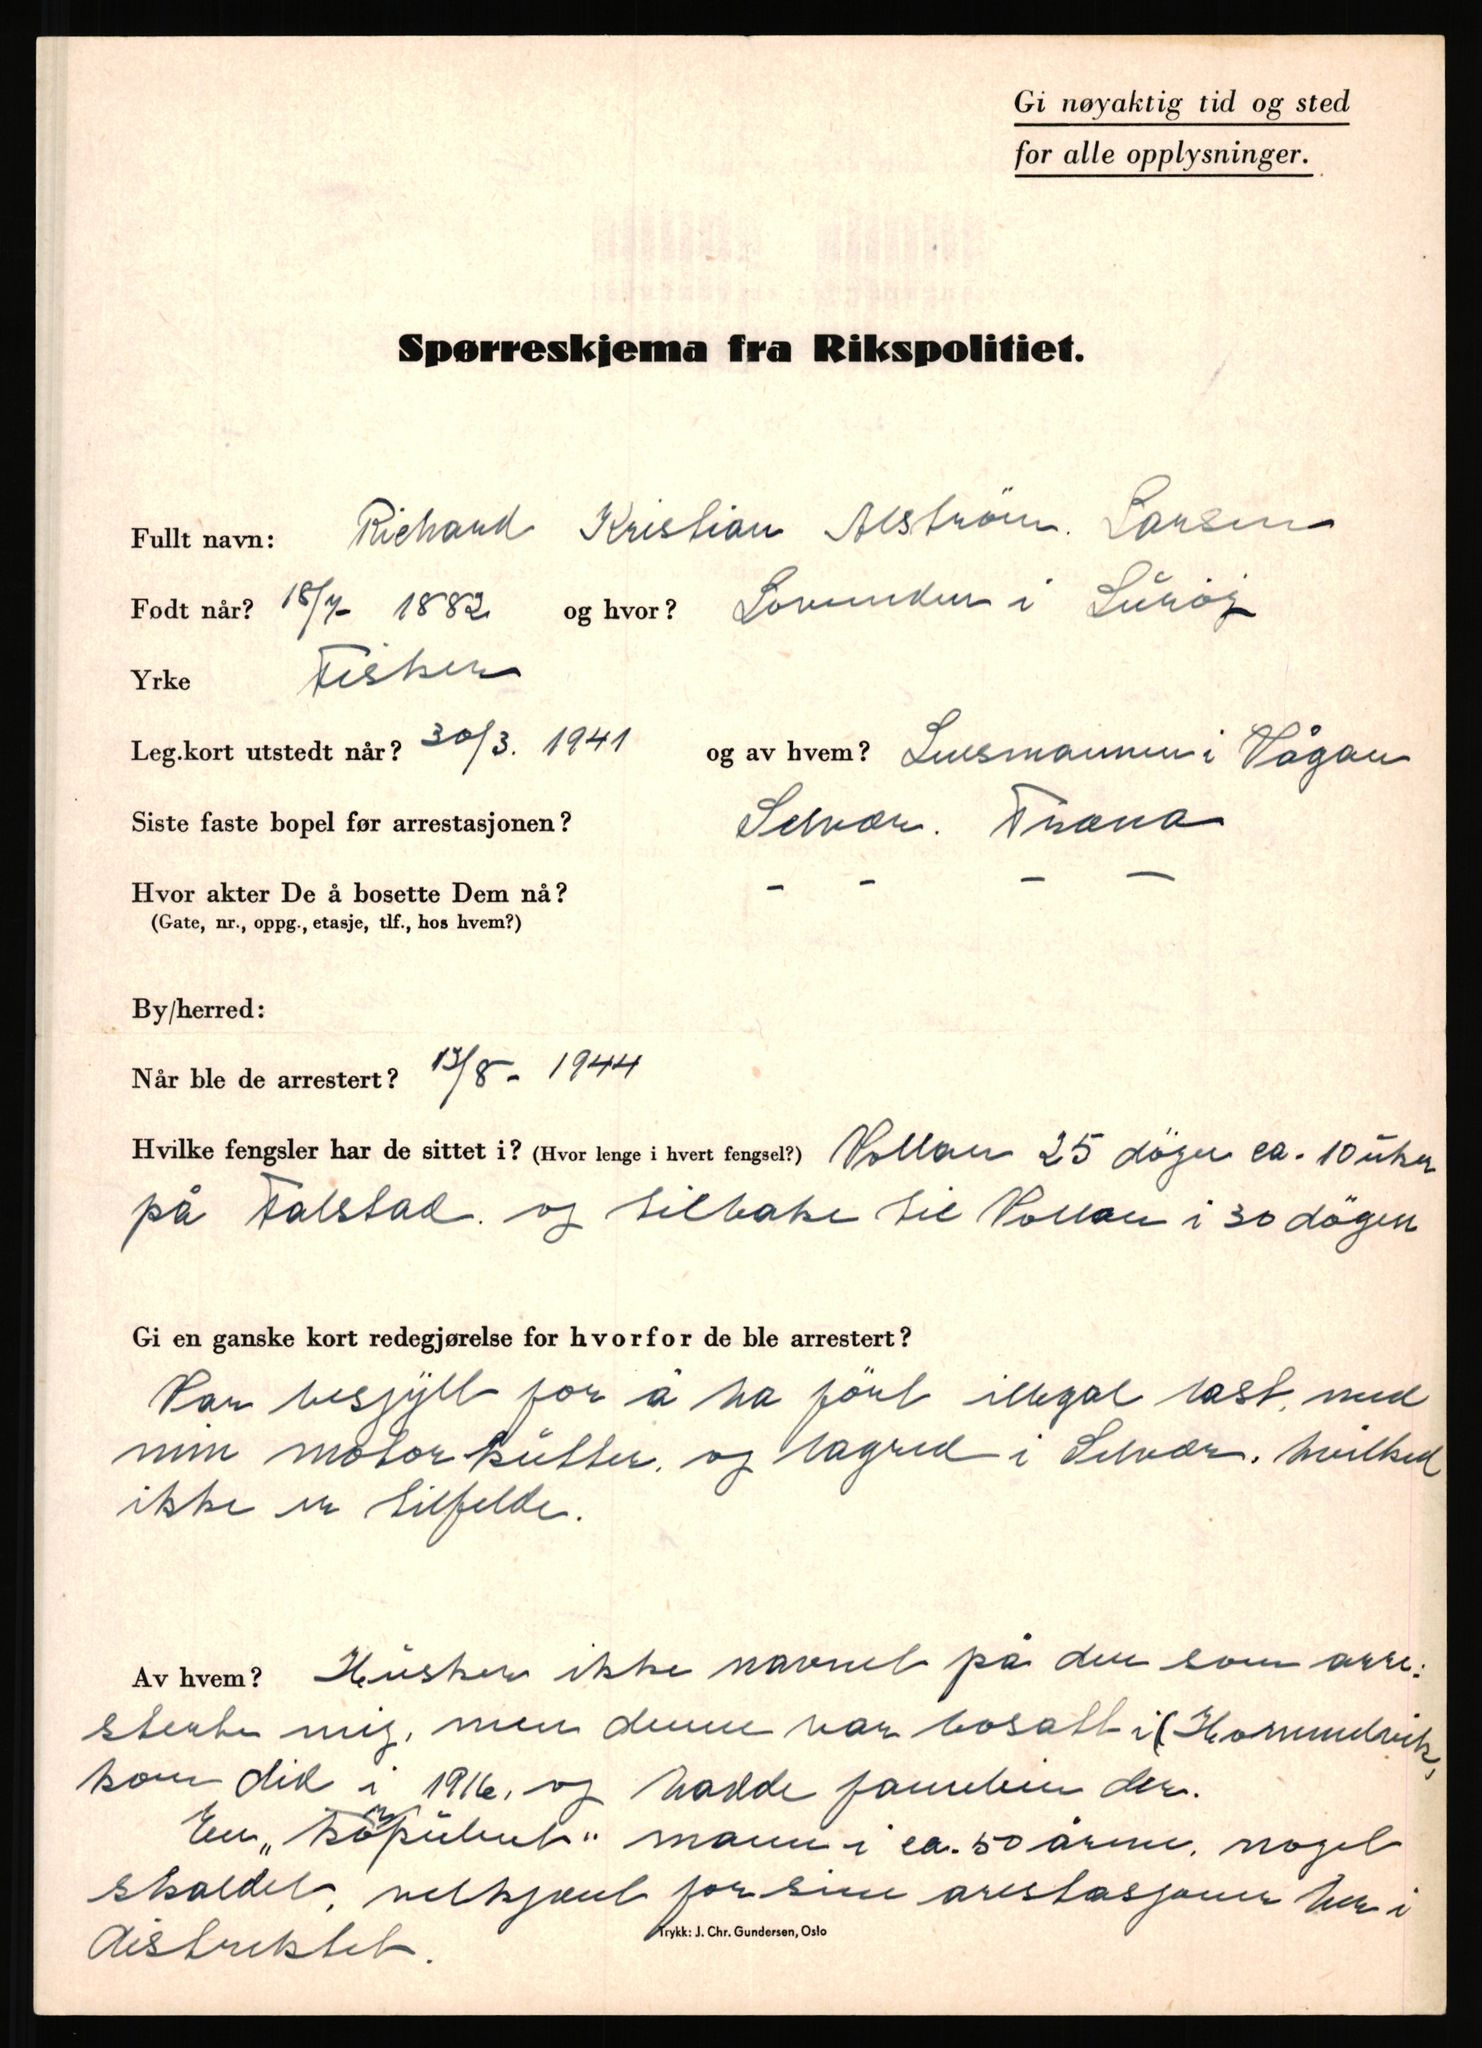 Gi nøyaktig tid og sted
for alle opplysninger.
Spørreskjema fra Rikspolitiet.
Fullt navn: Richard Kristian Alström. Larsen
Født når? 18/7- 1882 og hvor? Lovunden i Luröy
Yrke Fisker
Leg.kort utstedt når? 30/3. 1941 og av hvem? Lensmannen i Vågan
Siste faste bopel før arrestasjonen? Selvær. Træna
Hvor akter De å bosette Dem nå? - - - -
(Gate, nr., oppg., etasje, tlf., hos hvem?)
By/herred:
Når ble de arrestert? 13/8- 1944
Hvilke fengsler har de sittet i? (Hvor lenge i hvert fengsel?) Vollan 25 döger ca. 10 uker
på Falstad. og tilbake til Vollan i 30 dögen
Gi en ganske kort redegjørelse for hvorfor de ble arrestert?
Var besjyllt for å ha fört illegal last, med
min motorkutter. og lagred i Selvær. hvilked
ikke er tilfelde.
Av hvem? Husker ikke navnet på den som arre-
sterte mig, men denne var bosatt i (Hommelvik,
kom did i 1916, og hadde familien der.
En „korpulent" mann i ca. 50 årene, noget
skaldet, velkjent for sine arestasjoner her i
distriktet.
Trykk: J. Chr. Gundersen, Oslo